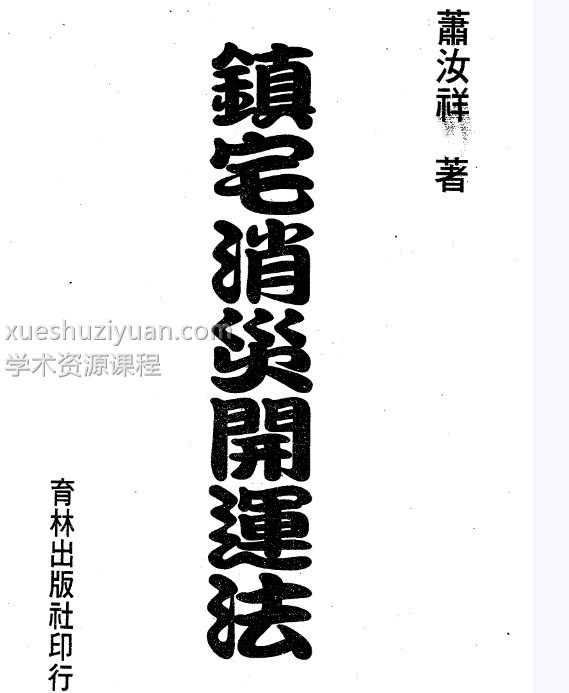 蕭汝祥 著
鎮宅消災開運法
育林出版社印行
xueshuziyuan.com
学术资源课程